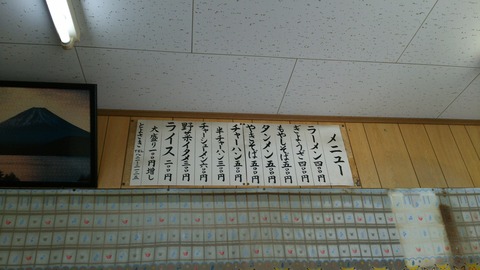 メニュー
ラーメン 四〇〇円
ぎょうざ 四〇〇円
もやしそば 五〇〇円
タンメン 五〇〇円
やきそば 五〇〇円
チャーハン 五〇〇円
半チャーハン 三〇〇円
チャーシューメン 六〇〇円
野菜イタメ 三〇〇円
ライス 二〇〇円
大盛り 一〇〇円増し